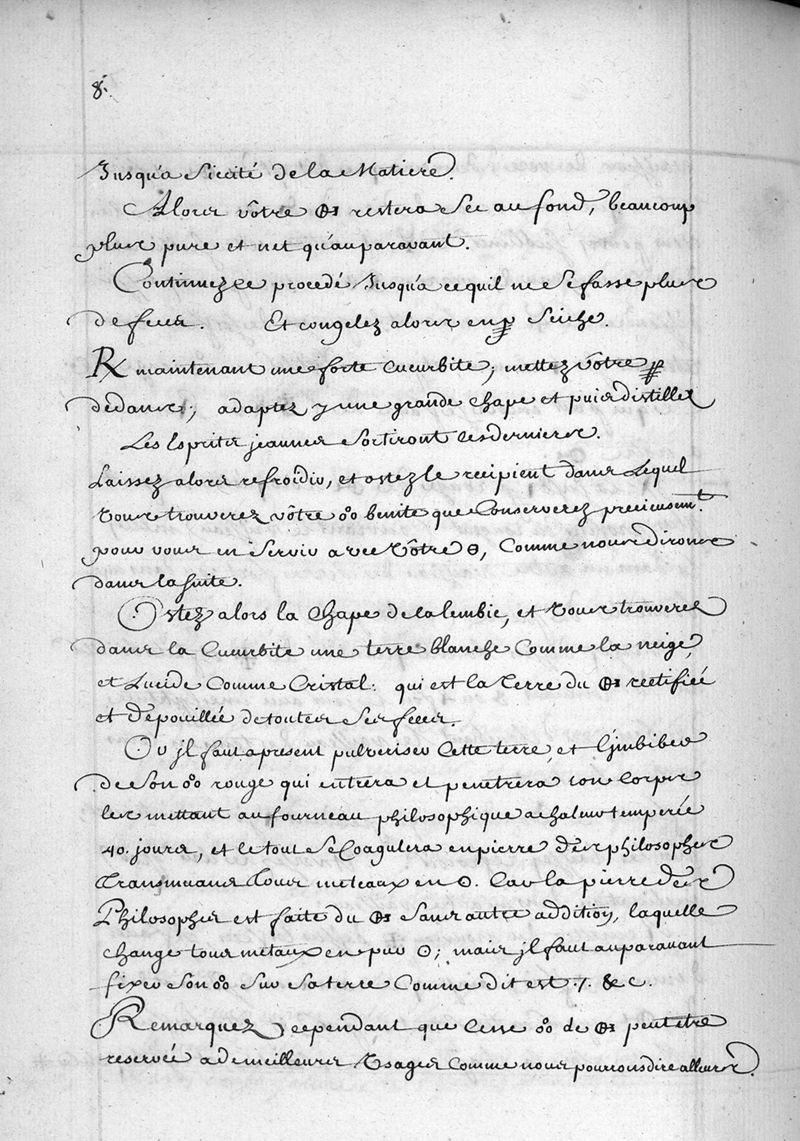 8.
Jusqu'a Siccité de la Matiere.
Alors vôtre 🜖 restera Sec au fond, beaucoup
plus pure et net qu'auparavant.
Continuez ce procedé Jusqu'a ce quil ne Se fasse plus
de feces. Et congelez alors en Seiche.
℞ maintenant une forte Cucurbite; mettez vôtre
dedans; adaptez y une grande Chape et puis distillez
Les Esprits jeaunes Sortiront les derniers.
Laissez alors refroidir, et ostez le recipient dans Lequel
Vous trouverez vôtre ꝏ benite que Conserverez precieusemt.
pour vous en Servir avec Vôtre 🜔, Comme nous dirons
dans la Suite.
Ostez alors la Chape de lalembic, et Vous trouverez
dans la Cucurbite une terre blanche Comme la neige,
et Lucide Comme Cristal: qui est la Terre du 🜖 rectifiée
et depouillée de toutes Ses feces.
Or jl faut apresent pulveriser Cette terre, et l'jmbiber
de Son ꝏ rouge qui entrera et penetrera son Corps
les mettant au fourneau philosophique a chaleur temperée
40. jours, et le tout Se Coagulera en pierre des philosophes
Transmuans Tous meteaux en ☉. Car la pierre des
Philosophes est faite du 🜖 Sans autre addition, laquelle
change tous metaux en pur ☉; mais jl faut auparavant
fixer Son ꝏ Sur Sa terre Comme dit est ./. &c.
Remarquez cependant que Cesse ꝏ de 🜖 peut etre
reservée a de meilleures Vsages Comme nous pourrons dire alleurs.